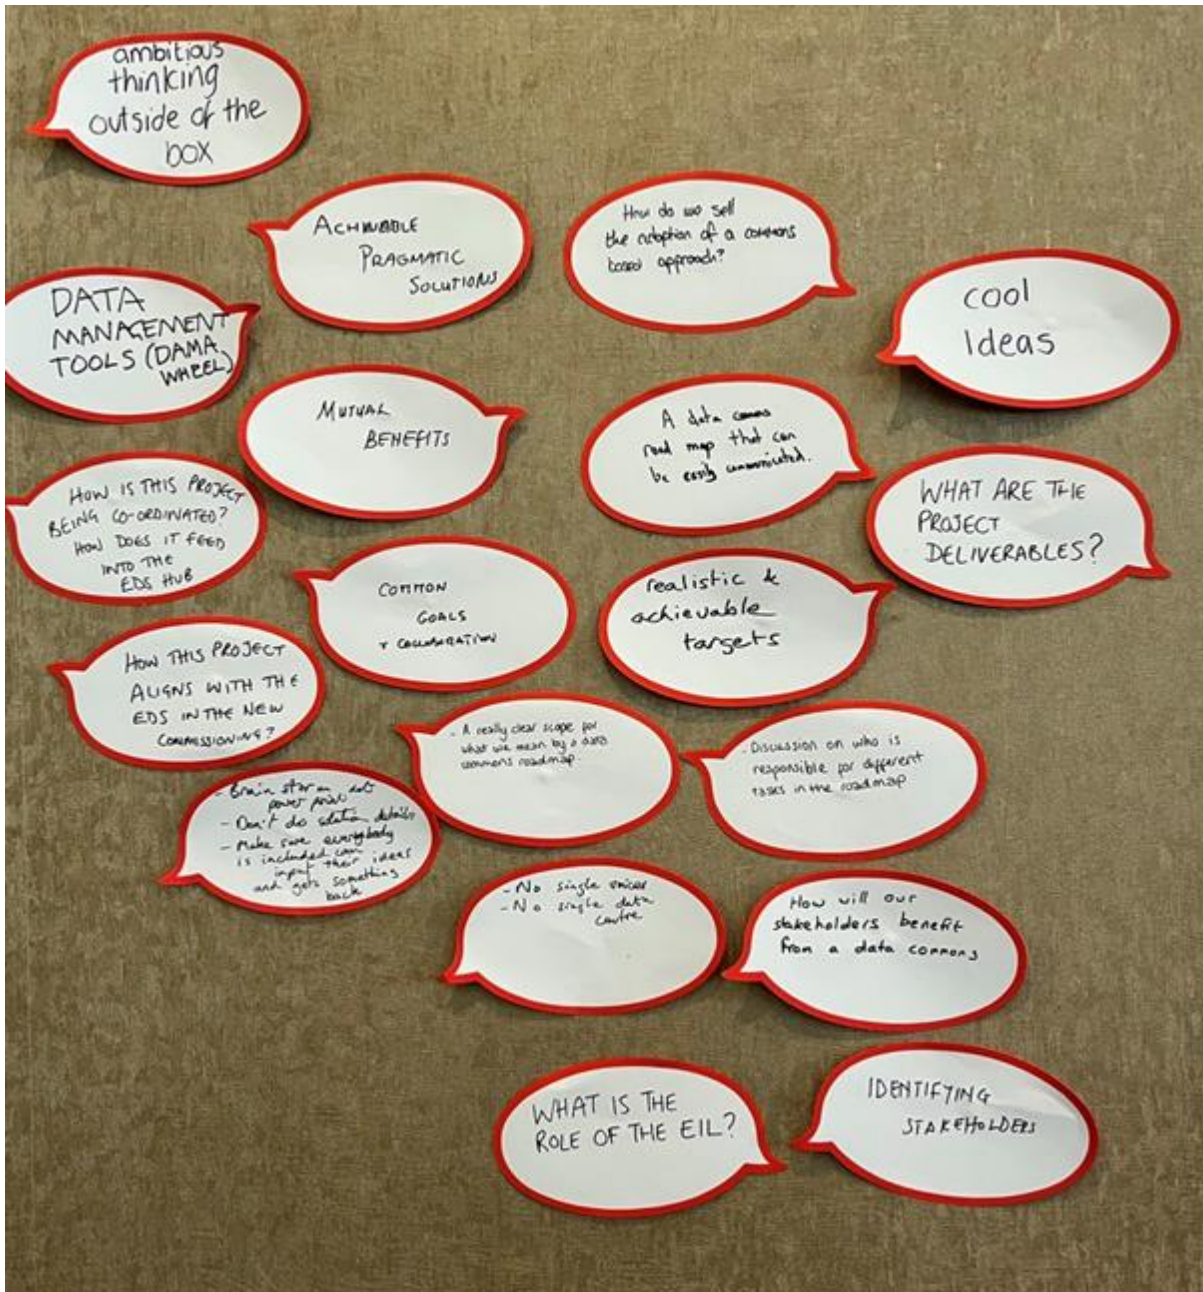 ambitious
thinking
outside of the
box
ACHIEVABLE
PRAGMATIC
SOLUTIONS
How do we sell
the adoption of a commons
based approach?
DATA
MANAGEMENT
TOOLS (DAMA
WHEEL)
cool
Ideas
MUTUAL
BENEFITS
A data commons
road map that can
be easily communicated.
HOW IS THIS PROJECT
BEING CO-ORDINATED?
HOW DOES IT FEED
INTO THE
EDS HUB
WHAT ARE THE
PROJECT
DELIVERABLES?
COMMON
GOALS
+ COLLABORATION
realistic &
achievable
targets
HOW THIS PROJECT
ALIGNS WITH THE
EDS IN THE NEW
COMMISSIONING?
- A really clear scope for
what we mean by a data
commons roadmap
- Discussion on who is
responsible for different
tasks in the roadmap
- Brain storm not
power point
- Don't do solution details
- Make sure everybody
is included can
input their ideas
and gets something
back
- No single
- No single data
centre
How will our
stakeholders benefit
from a data commons
WHAT IS THE
ROLE OF THE EIL?
IDENTIFYING
STAKEHOLDERS